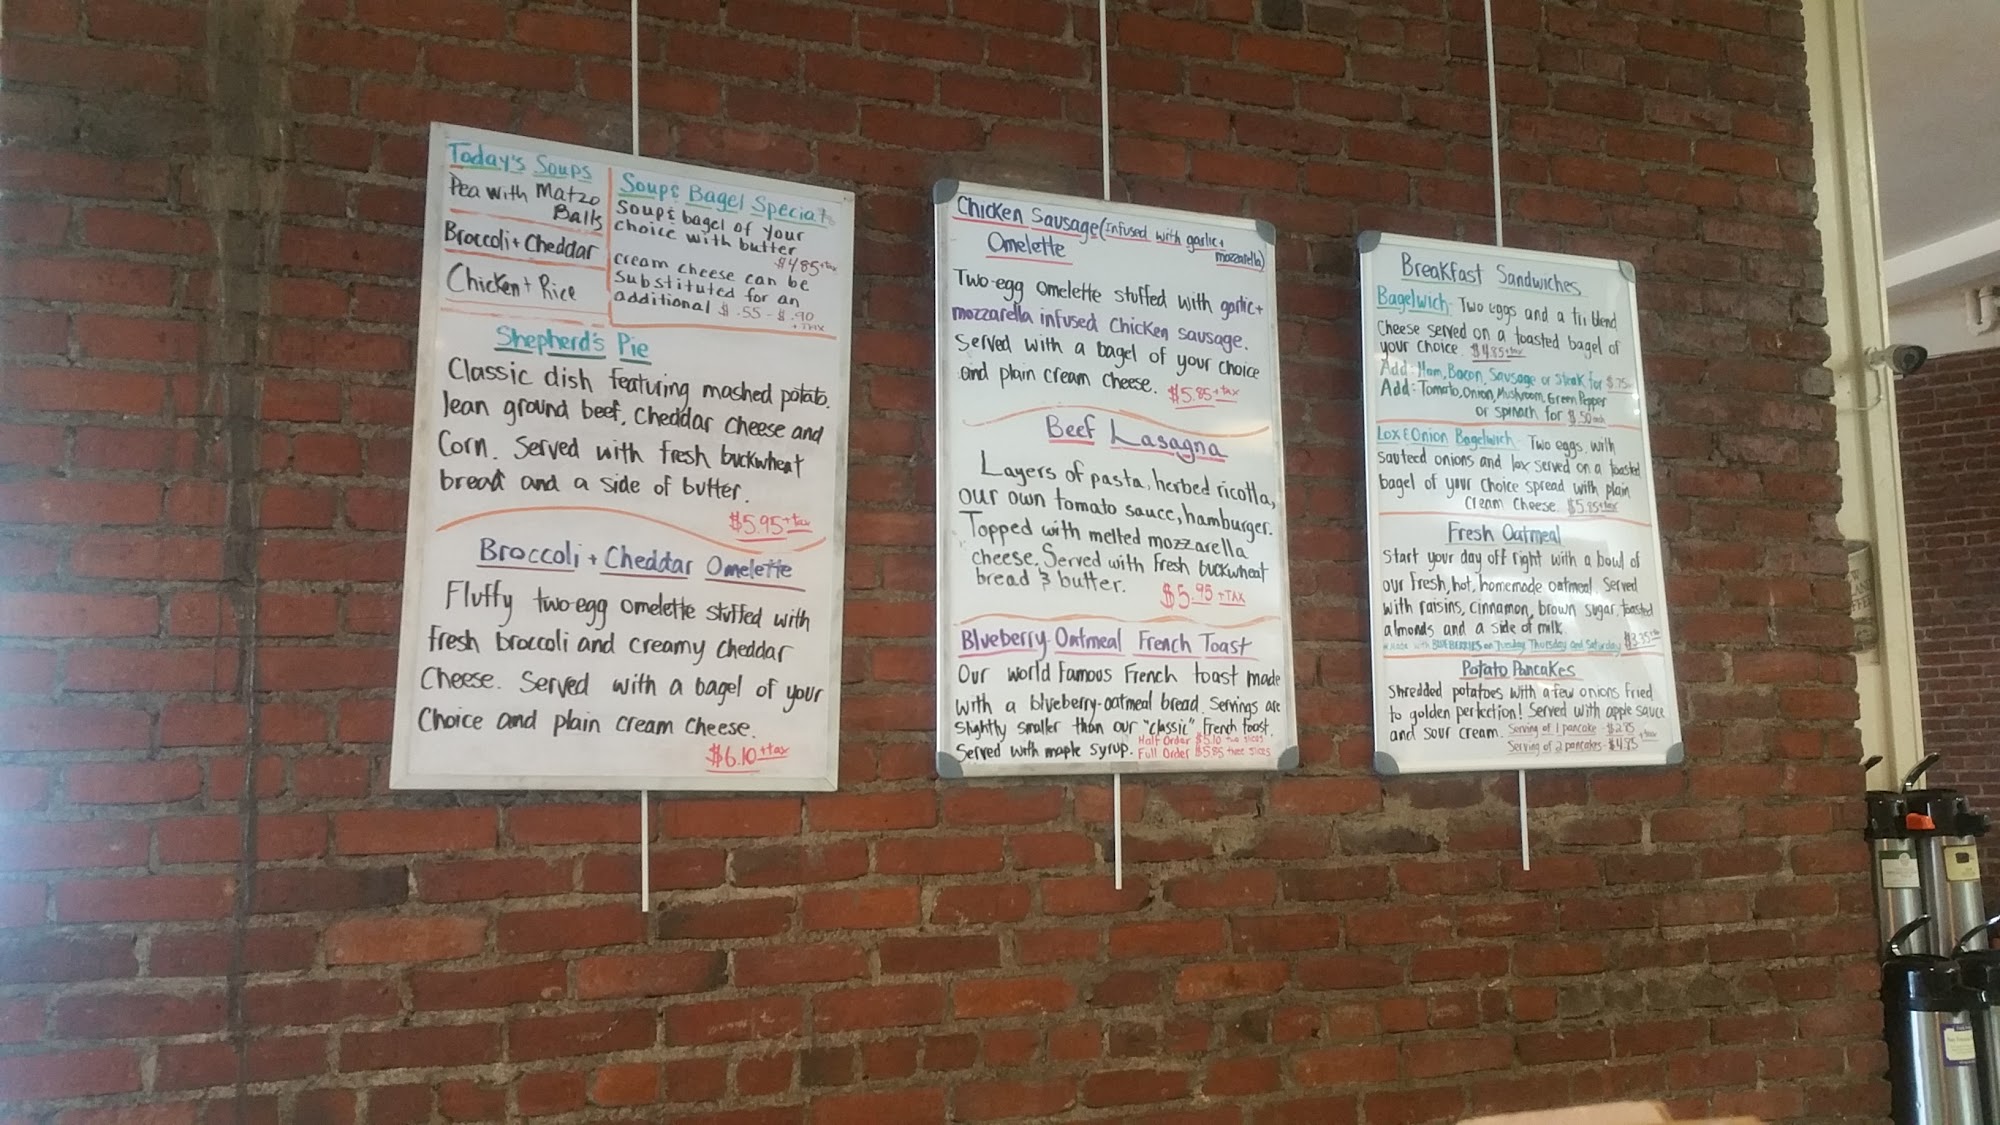 Today's Soups
Pea with Matzo
Balls
Broccoli + Cheddar
Chicken + Rice
Soup & Bagel Special
Soup & bagel of your
choice with butter
$4.85 + tax
cream cheese can be
substituted for an
additional $.55 - $.90
+ TAX
Shepherd's Pie
Classic dish featuring mashed potato,
lean ground beef, Cheddar Cheese and
Corn. Served with fresh buckwheat
bread and a side of butter.
$5.95 + tax
Broccoli + Cheddar Omelette
Fluffy two-egg omelette stuffed with
fresh broccoli and creamy cheddar
Cheese. Served with a bagel of your
Choice and plain cream cheese.
$6.10 + tax
Chicken Sausage (Infused with garlic +
mozzarella)
Omelette
Two-egg omelette stuffed with garlic +
mozzarella infused Chicken sausage.
Served with a bagel of your choice
and plain cream cheese. $5.85 + tax
Beef Lasagna
Layers of pasta, herbed ricotta,
our own tomato sauce, hamburger.
Topped with melted mozzarella
cheese. Served with Fresh buckwheat
bread & butter. $5.95 + TAX
Blueberry Oatmeal French Toast
Our world Famous French toast made
with a blueberry-oatmeal bread. Servings are
slightly smaller than our "classic" French toast.
Served with maple syrup. Half Order $5.10 two slices
Full Order $5.85 three slices
Breakfast Sandwiches
Bagelwich - Two eggs and a tri blend
Cheese served on a toasted bagel of
your choice. $4.85 + tax
Add: Ham, Bacon, Sausage or Steak for $.75
Add: Tomato, Onion, Mushroom, Green Pepper
or spinach for $.50 each
Lox & Onion Bagelwich - Two eggs with
sauteed onions and lox served on a toasted
bagel of your choice spread with plain
Cream Cheese. $5.85 + tax
Fresh Oatmeal
Start your day off right with a bowl of
our Fresh, hot, homemade oatmeal. Served
with raisins, cinnamon, brown sugar, toasted
almonds and a side of milk.
* Made with BLUEBERRIES on Tuesday Thursday and Saturday $3.35 + tax
Potato Pancakes
Shredded potatoes with a few onions Fried
to golden perfection! Served with apple sauce
and sour cream. Serving of 1 pancake - $2.85
Serving of 2 pancakes - $4.85 + tax